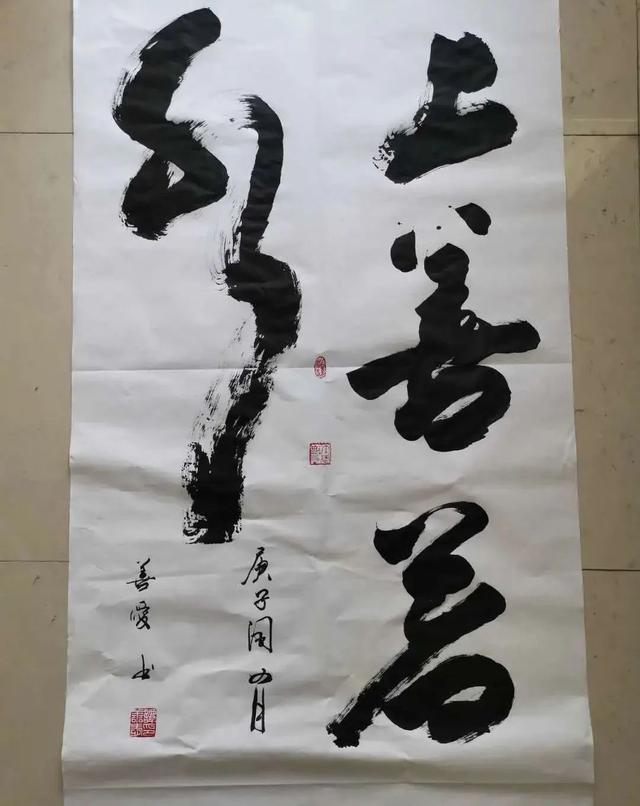 上善若
水
庚子闰四月
善嗳书